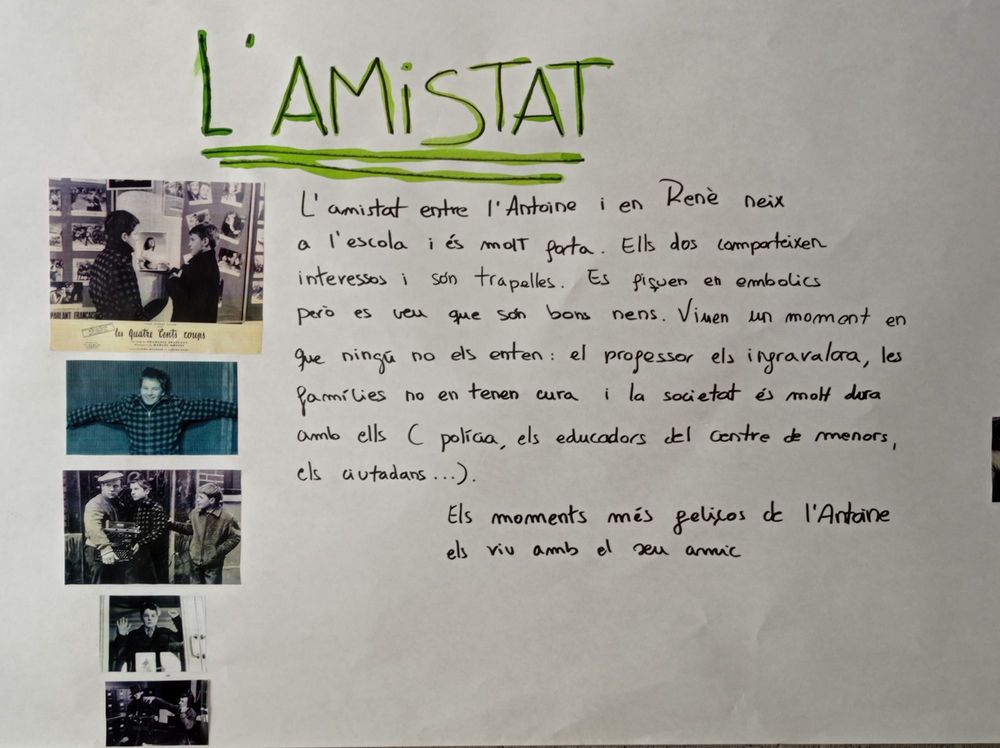 L'AMiSTAT
L'amistat entre l'Antoine i en Renè neix
a l'escola i és molt forta. Ells dos comparteixen
interessos i són trapelles. Es fiquen en embolics
però es veu que són bons nens. Viuen un moment en
que ningú no els enten: el professor els infravalora, les
famílies no en tenen cura i la societat és molt dura
amb ells ( policia, els educadors del centre de menors,
els ciutadans...).
Els moments més feliços de l'Antoine
els viu amb el seu amic
PARLANT FRANÇAIS
les Quatre Cents coups